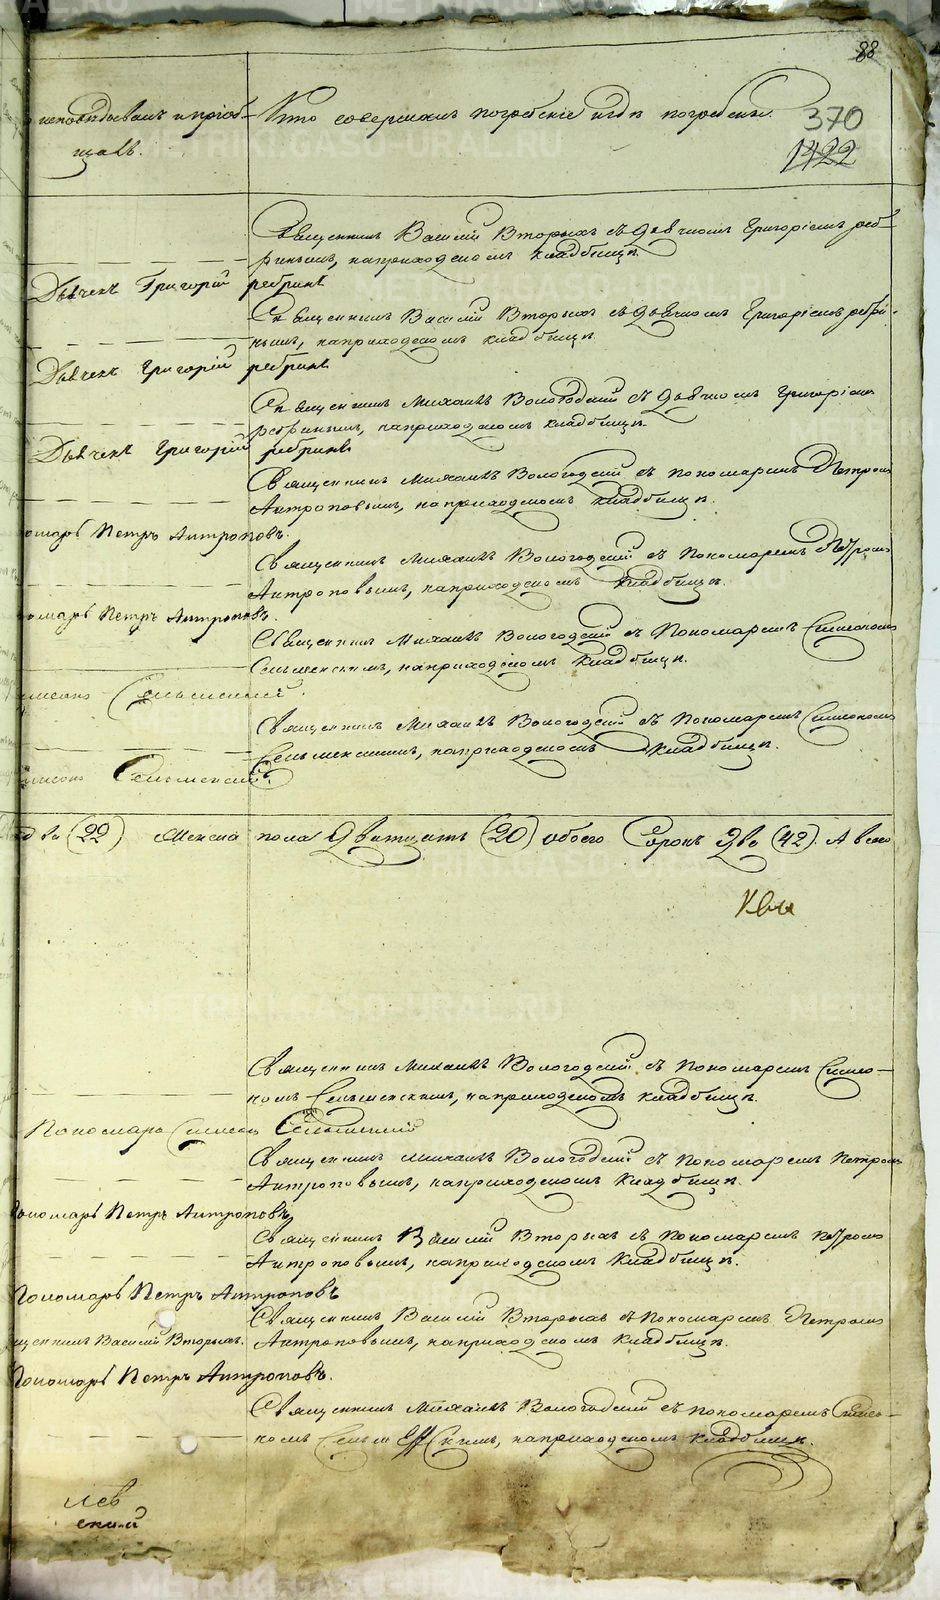 88
исповѣдывалъ и пріоб-
щалъ.
Кто совершалъ погребеніе и гдѣ погребены.
370
1422
Священникъ Василій Вторыхъ съ дьячкомъ Григоріемъ реб-
ринымъ, наприходскомъ кладбищѣ
Дьячекъ Григорій ребринъ
Священникъ Василій Вторыхъ съ дьячкомъ Григоріемъ ребри-
нымъ, наприходскомъ кладбищѣ
Дьячекъ Григорій ребринъ
Священникъ Михаилъ Вологодскій съ дьячкомъ Григоріемъ
ребринымъ, наприходскомъ кладбищѣ
Дьячекъ Григорій ребринъ
Священникъ Михаилъ Вологодскій съ пономаремъ Петромъ
Антроповымъ, наприходскомъ кладбищѣ.
омарь Петръ Антроповъ.
Священникъ Михаилъ Вологодскій съ Пономаремъ Петромъ
Антроповымъ, наприходскомъ кладбищѣ.
омарь Петръ Антроповъ.
Священникъ Михаилъ Вологодскій съ Пономаремъ Симеономъ
Сельменскимъ, наприходскомъ кладбищѣ.
имеонъ Сельменскій.
Священникъ Михаилъ Вологодскій съ Пономаремъ Симеономъ
Сельменскимъ, наприходскомъ кладбищѣ.
имеонъ Сельменскій.
два (22) Женска пола Дватцать (20) обоего Сорокъ Два (42). А всего
Священникъ Михаилъ Вологодскій съ Пономаремъ Симео-
номъ Сельменскимъ, наприходскомъ кладбищѣ.
Пономарь Симеонъ Сельменскій
Священникъ Михаилъ Вологодскій съ Пономаремъ Петромъ
Антроповымъ, наприходскомъ кладбищѣ.
ономарь Петръ Антроповъ
Священникъ Василій Вторыхъ съ Пономаремъ Петромъ
Антроповымъ, наприходскомъ кладбищѣ.
Пономарь Петръ Антроповъ
Священникъ Василій Вторыхъ съ Пономаремъ Петромъ
щенникъ Василій Вторыхъ. Антроповымъ, наприходскомъ кладбищѣ.
Пономарь Петръ Антроповъ.
Священникъ Михаилъ Вологодскій съ пономаремъ Симео-
номъ Сельменскимъ, наприходскомъ кладбищѣ.